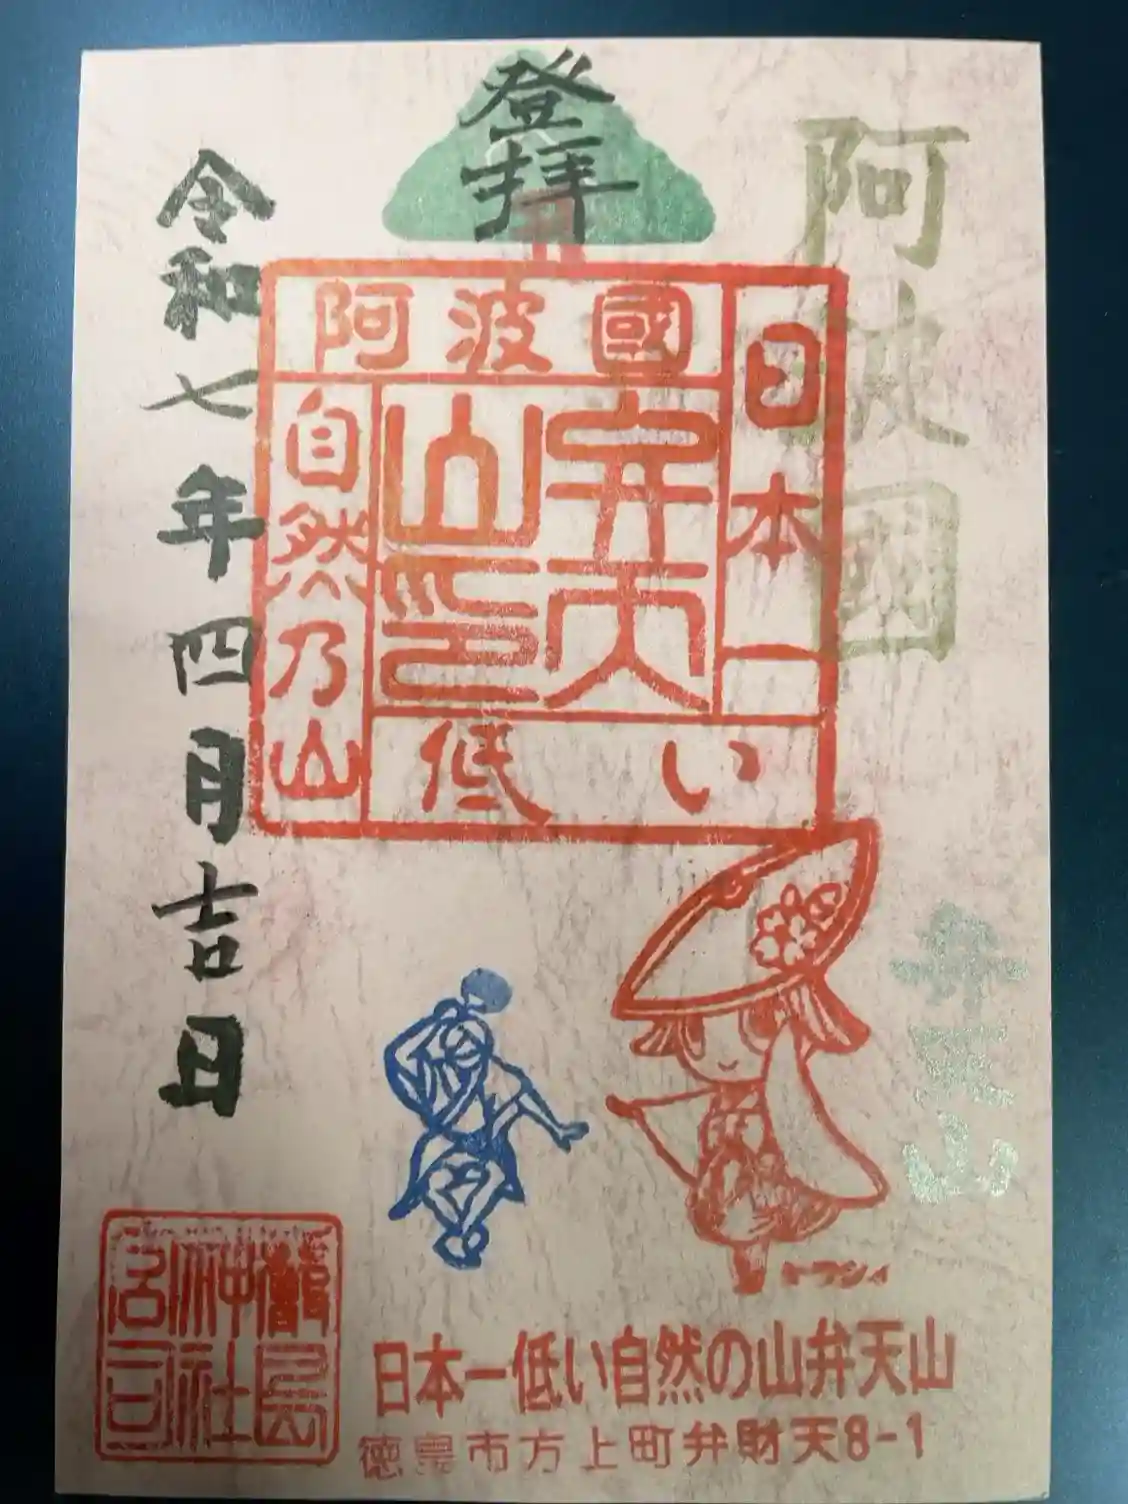 登拝
阿波國
弁天山
日本一
阿波國
弁天
山印
自然乃山
低い
令和七年四月吉日
日本一低い自然の山弁天山
徳島市方上町弁財天8-1
神社